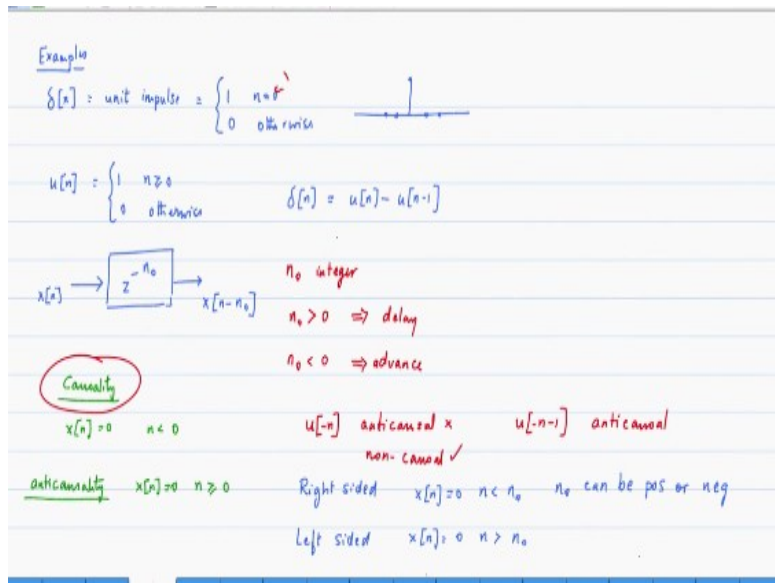 Examples
δ[n] = unit impulse = { 1 n=0
0 otherwise
u[n] = { 1 n≥0
0 otherwise
δ[n] = u[n] - u[n-1]
x[n] → z^{-n₀} → x[n-n₀]
n₀ integer
n₀ > 0 ⇒ delay
n₀ < 0 ⇒ advance
Causality
x[n] = 0 n < 0
u[-n] anticausal × u[-n-1] anticausal
non-causal ✓
anticausality x[n]=0 n ≥ 0
Right sided x[n]=0 n < n₀ n₀ can be pos or neg
Left sided x[n]=0 n > n₀